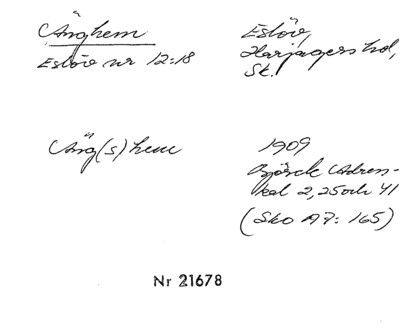 Änghem
Eslöv nr 12:18
Eslöv,
Harjagers hd,
Sk.
Äng(s)hem
1909
Björck Adress-
kal 2, 25 och 41
(Sko A7: 165)
Nr 21678